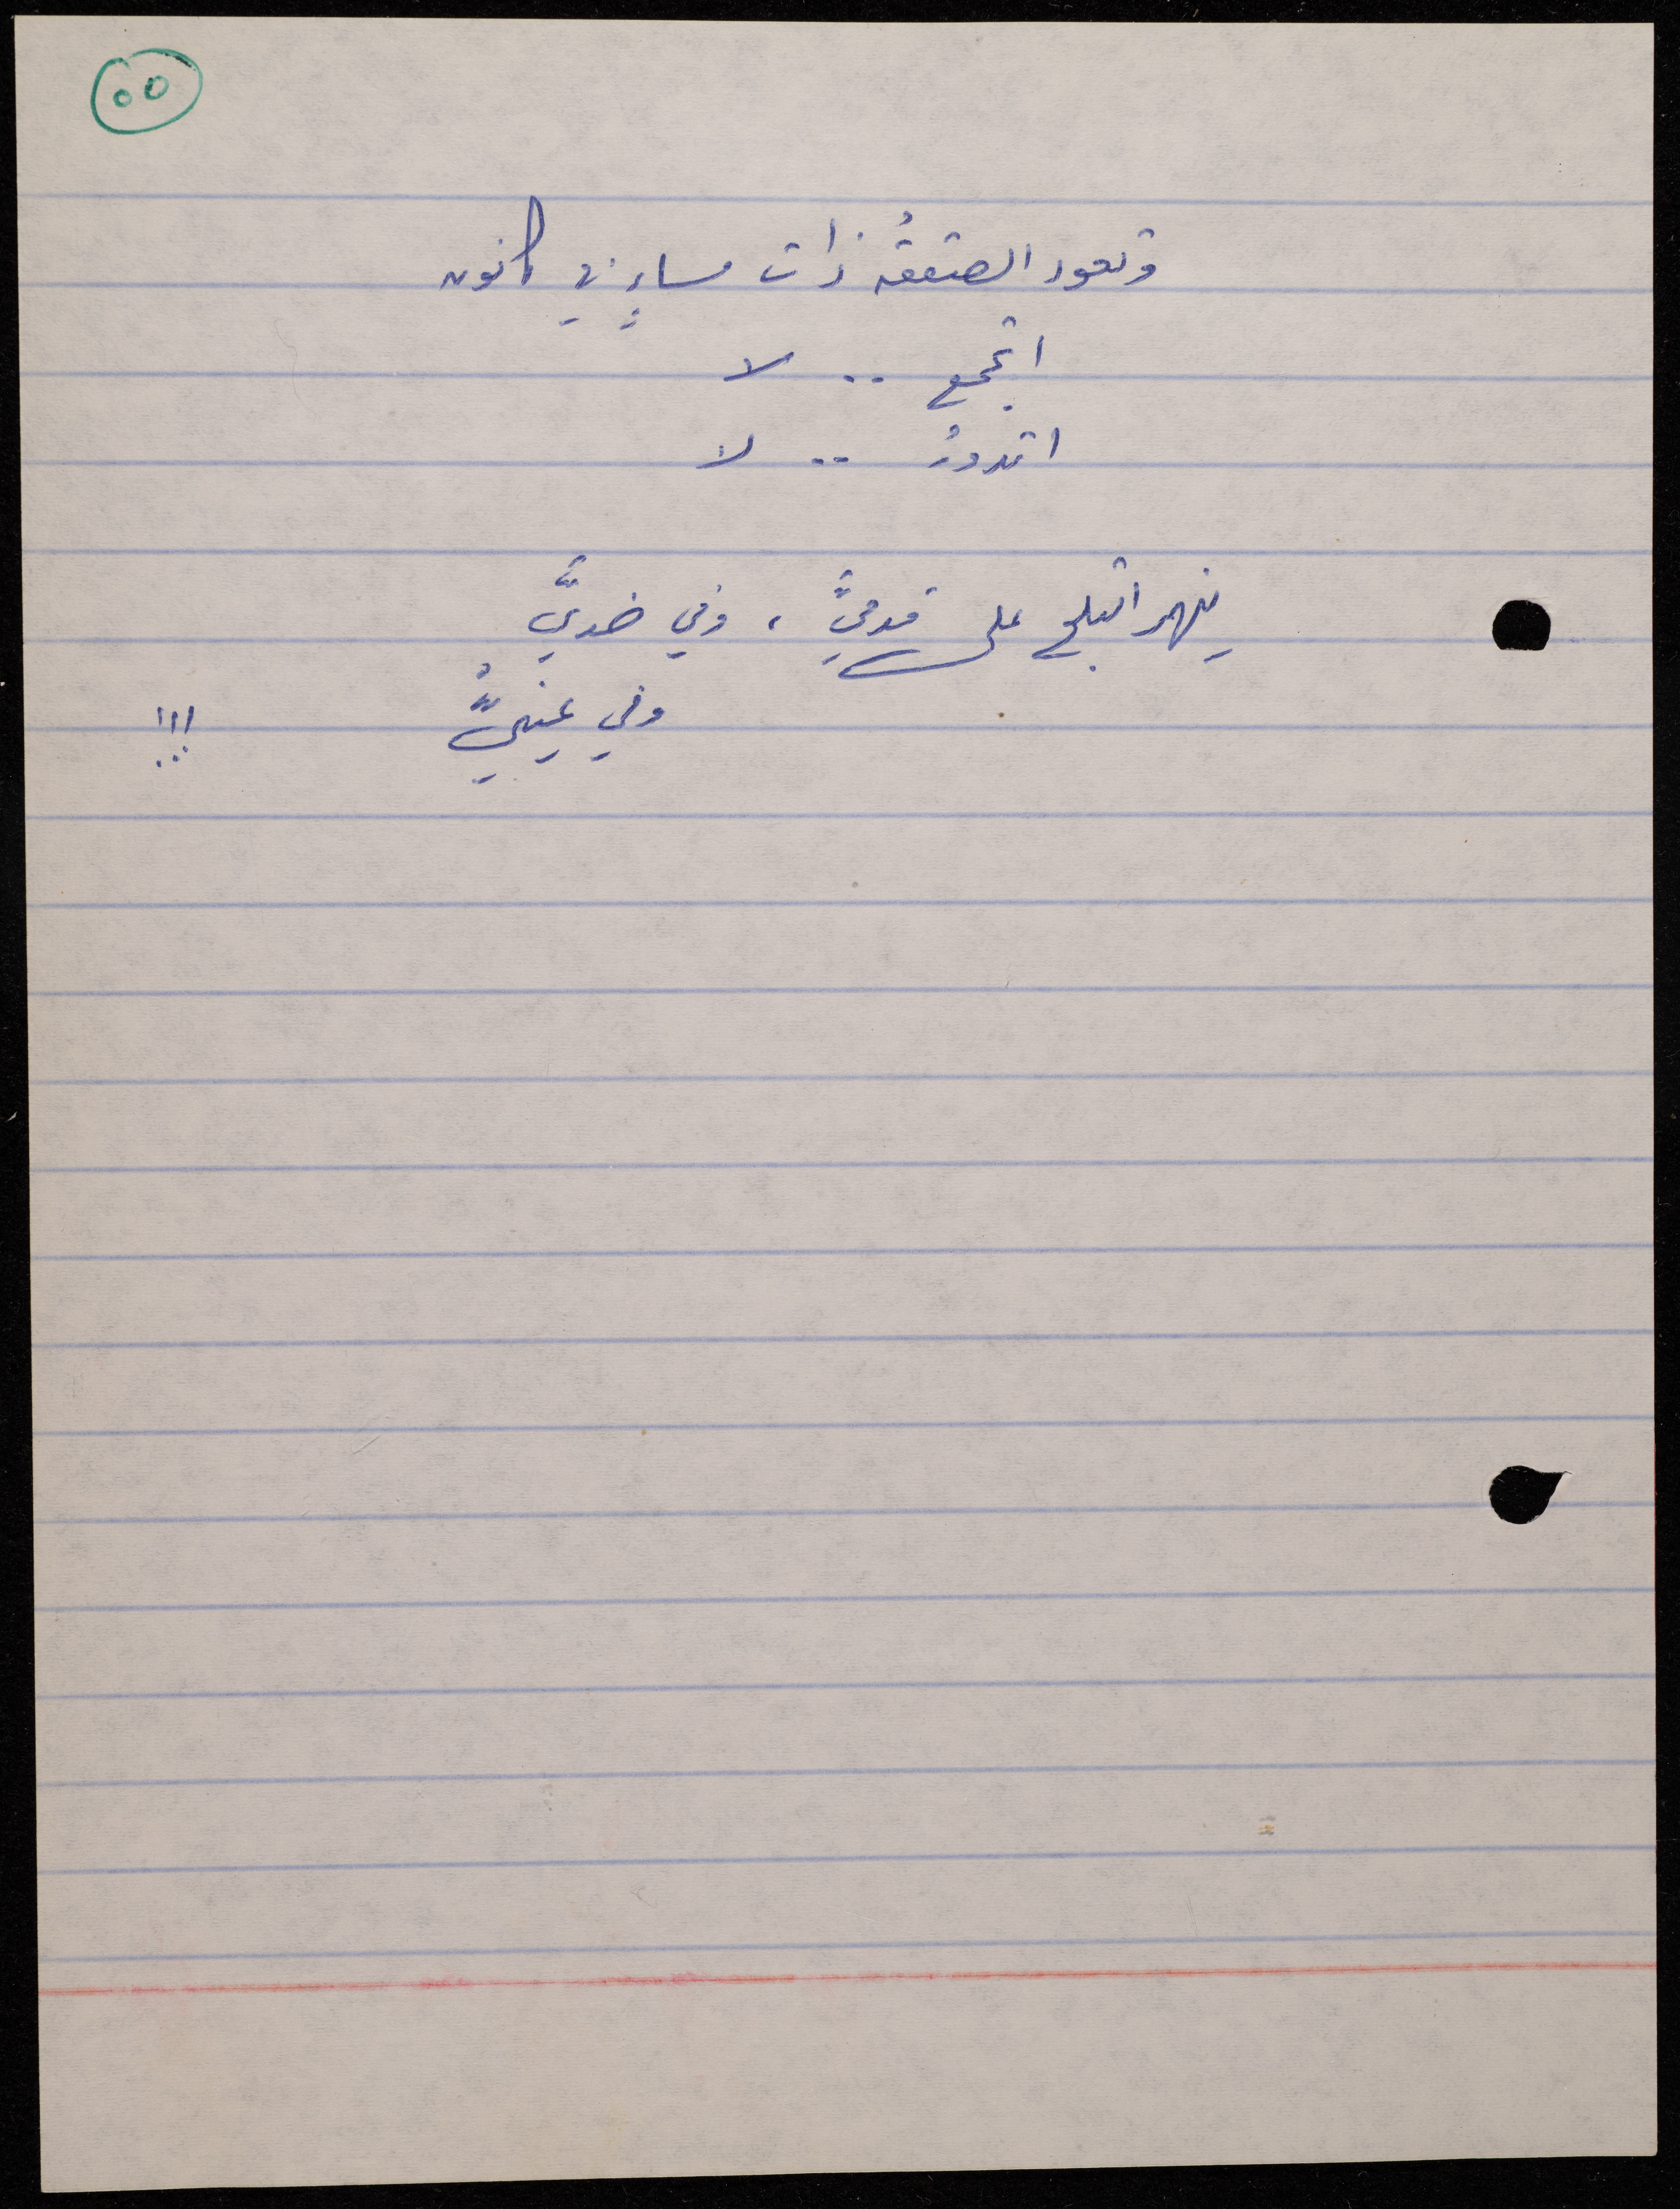 ٥٥
وتعود الصفقةُ ذات مساءٍ في كانون
اتجمع .. لا
اتدورُ .. لا
ينهمر الثلج على قدميَّ ، وفي خديَّ
وفي عينيَّ !!!